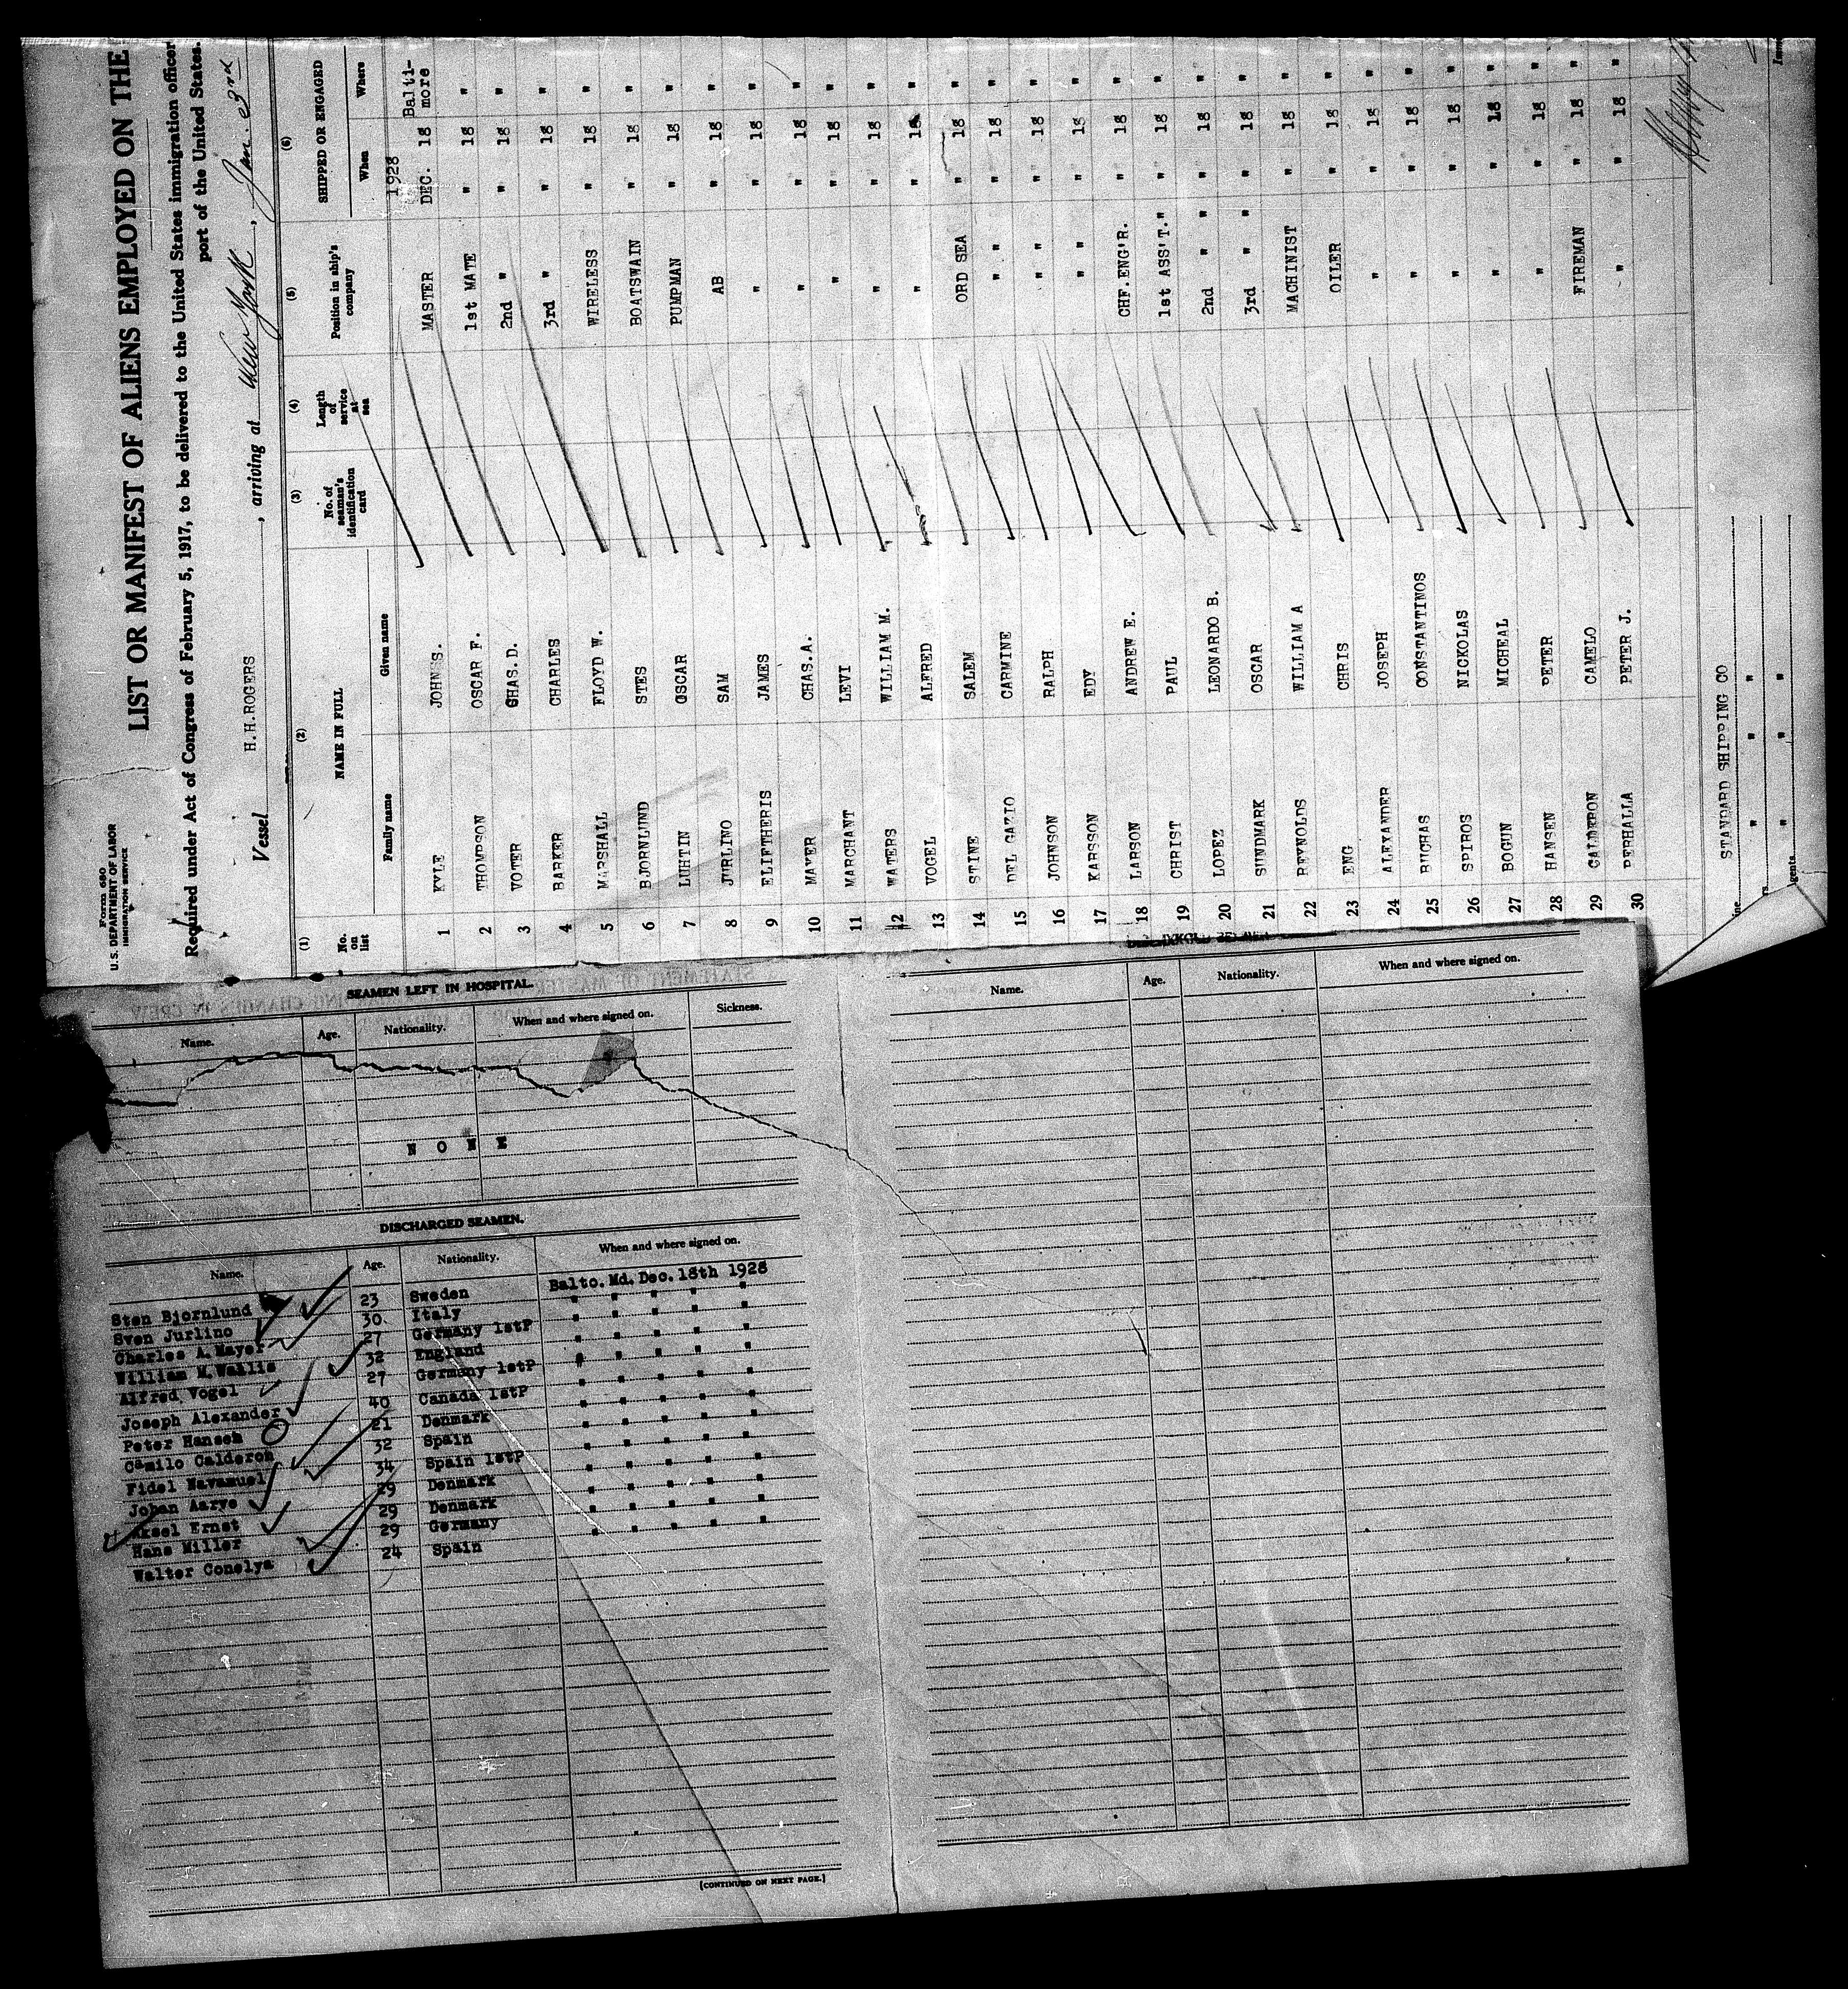 Form 680
U.S. DEPARTMENT OF LABOR
IMMIGRATION SERVICE
LIST OR MANIFEST OF ALIENS EMPLOYED ON THE
Required under Act of Congress of February 5, 1917, to be delivered to the United States immigration officer
port of the United States.
Vessel H.H.ROGERS, arriving at New York, Jan.
(1) (2) (3) (4) (5) (6)
No. on list NAME IN FULL No. of seaman's identification card Length of service at sea Position in ship's company SHIPPED OR ENGAGED
Family name Given name When Where
1928
1 KYLE JOHN S. MASTER DEC. 18 Balti-more
2 THOMPSON OSCAR F. 1st MATE " 18 "
3 VOTER CHAS.D. 2nd " " 18 "
4 BARKER CHARLES 3rd " " 18 "
5 MARSHALL FLOYD W. WIRELESS " 18 "
6 BJORNLUND STES BOATSWAIN " 18 "
7 LUHTIN OSCAR PUMPMAN " 18 "
8 JURLINO SAM AB " 18 "
9 ELIFTHERIS JAMES " " 18 "
10 MAYER CHAS.A. " " 18 "
11 MARCHANT LEVI " " 18 "
12 WATERS WILLIAM M. " " 18 "
13 VOGEL ALFRED " " 18 "
14 STINE SALEM ORD SEA " 18 "
15 DEL GAZIO CARMINE " " " 18 "
16 JOHNSON RALPH " " " 18 "
17 KARSSON EDY " " " 18 "
18 LARSON ANDREW E. CHF.ENG'R. " 18 "
19 CHRIST PAUL 1st ASS'T." " 18 "
20 LOPEZ LEONARDO B. 2nd " " " 18 "
21 SUNDMARK OSCAR 3rd " " " 18 "
22 REYNOLDS WILLIAM A MACHINIST " 18 "
23 ENG CHRIS OILER " 18 "
24 ALEXANDER JOSEPH " " 18 "
25 BUCHAS CONSTANTINOS " " 18 "
26 SPIROS NICKOLAS " " 18 "
27 BOGUN MICHEAL " " 18 "
28 HANSEN PETER " " 18 "
29 CALDERON CAMELO FIREMAN " 18 "
30 PERHALLA PETER J. " " 18 "
STANDARD SHIPPING CO
" " "
" " "
SEAMEN LEFT IN HOSPITAL.
Name. Age. Nationality. When and where signed on. Sickness.
N O N E
DISCHARGED SEAMEN.
Name. Age. Nationality. When and where signed on.
Sten Bjornlund 23 Sweden Balto. Md. Dec. 18th 1928
Sven Jurlino 30 Italy " " " " "
Charles A. Mayer 27 Germany 1stP " " " " "
William M. Wallis 32 England " " " " "
Alfred Vogel 27 Germany 1stP " " " " "
Joseph Alexander 40 Canada 1stP " " " " "
Peter Hansen 21 Denmark " " " " "
Camilo Calderon 32 Spain " " " " "
Fidel Navamuel 34 Spain 1stP " " " " "
Johan Aarve 29 Denmark " " " " "
Aksel Ernst 29 Denmark " " " " "
Hans Miller 29 Germany " " " " "
Walter Conelya 24 Spain " " " " "
[CONTINUED ON NEXT PAGE.]
Name. Age. Nationality. When and where signed on.